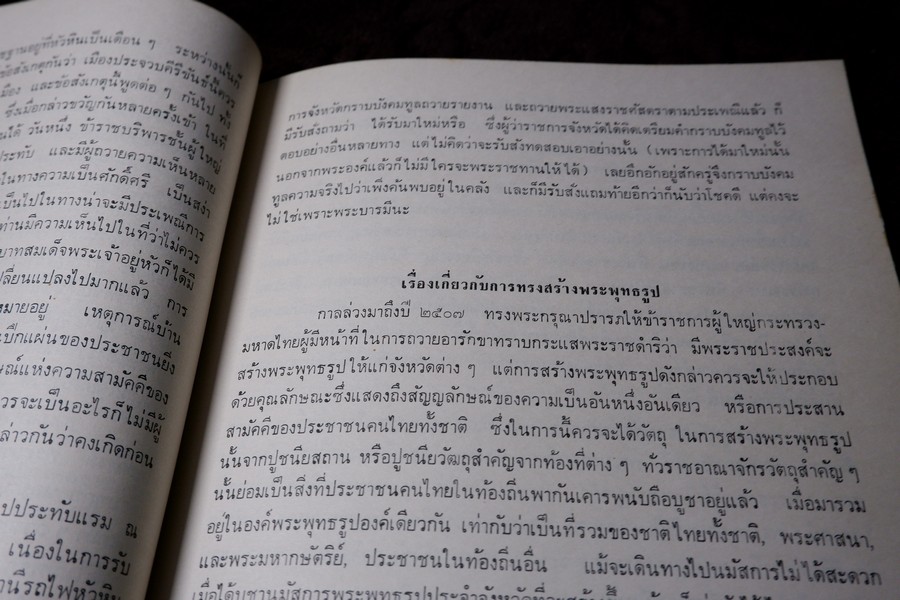 ฐานอยู่ที่หัวหินเป็นเดือน ๆ ระหว่างนั้นก็
ข้อสังเกตุกันว่า เมืองประจวบคีรีขันธ์นี้ควร
เมือง และข้อสังเกตุนี้พูดต่อ ๆ กันไป ทั้ง
ซึ่งเมื่อกล่าวขวัญกันหลายครั้งเข้า ในที่
วันหนึ่ง ข้าราชบริพารชั้นผู้ใหญ่
ประทับ และมีผู้ถวายความเห็นหลาย
ในทางความเป็นศักดิ์ศรี เป็นสง่า
เป็นไปในทางน่าจะมีประเพณีการ
ท่านมีความเห็นไปในที่ว่าไม่ควร
บาทสมเด็จพระเจ้าอยู่หัวก็ได้มี
เปลี่ยนแปลงไปมากแล้ว การ
หมายอยู่ เหตุการณ์บ้าน
เป็กแผ่นของประชาชนยิ่ง
แห่งความสามัคคีของ
ควรจะเป็นอะไรก็ไม่มีผู้
กล่าวกันว่าคงเกิดก่อน
ไปประทับแรม ณ
เนื่องในการรับ
สถานีรถไฟหัวหิน
การจังหวัดกราบบังคมทูลถวายรายงาน และถวายพระแสงราชศัสตราตามประเพณีแล้ว ก็
มีรับสั่งถามว่า ได้รับมาใหม่หรือ ซึ่งผู้ว่าราชการจังหวัดได้คิดเตรียมคำกราบบังคมทูลไว้
ตอบอย่างอื่นหลายทาง แต่ไม่คิดว่าจะรับสั่งทดสอบเอาอย่างนั้น (เพราะการได้มาใหม่นั้น
นอกจากพระองค์แล้วก็ไม่มีใครจะพระราชทานให้ได้) เลยอึกอักอยู่สักครู่จึงกราบบังคม
ทูลความจริงไปว่าเพิ่งค้นพบอยู่ในคลัง และก็มีรับสั่งแถมท้ายอีกว่าก็นับว่าโชคดี แต่คงจะ
ไม่ใช่เพราะพระบารมีนะ
เรื่องเกี่ยวกับการทรงสร้างพระพุทธรูป
กาลล่วงมาถึงปี ๒๕๐๗ ทรงพระกรุณาปรารภให้ข้าราชการผู้ใหญ่กระทรวง-
มหาดไทยผู้มีหน้าที่ในการถวายอารักขาทราบกระแสพระราชดำริว่า มีพระราชประสงค์จะ
สร้างพระพุทธรูปให้แก่จังหวัดต่าง ๆ แต่การสร้างพระพุทธรูปดังกล่าวควรจะให้ประกอบ
ด้วยคุณลักษณะซึ่งแสดงถึงสัญญลักษณ์ของความเป็นอันหนึ่งอันเดียว หรือการประสาน
สามัคคีของประชาชนคนไทยทั้งชาติ ซึ่งในการนี้ควรจะได้วัตถุ ในการสร้างพระพุทธรูป
นั้นจากปูชนียสถาน หรือปูชนียวัฒถุสำคัญจากท้องที่ต่าง ๆ ทั่วราชอาณาจักรวัตถุสำคัญ ๆ
นั้นย่อมเป็นสิ่งที่ประชาชนคนไทยในท้องถิ่นพากันเคารพนับถือบูชาอยู่แล้ว เมื่อมารวม
อยู่ในองค์พระพุทธรูปองค์เดียวกัน เท่ากับว่าเป็นที่รวมของชาติไทยทั้งชาติ, พระศาสนา,
และพระมหากษัตริย์, ประชาชนในท้องถิ่นอื่น แม้จะเดินทางไปนมัสการไม่ได้สะดวก
เมื่อได้บูชานมัสการพระพุทธรูปประจำจังหวัดที่จะสร้างขึ้น